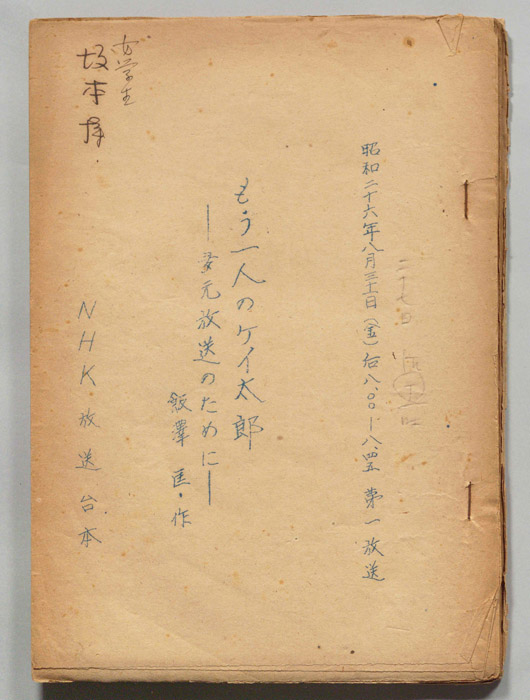 昭和二十六年八月三十一日(金)后八、〇〇―八、四五 第一放送
もう一人のケイ太郎
―多元放送のために―
飯澤 匡・作
NHK放送台本
女学生
坂本様